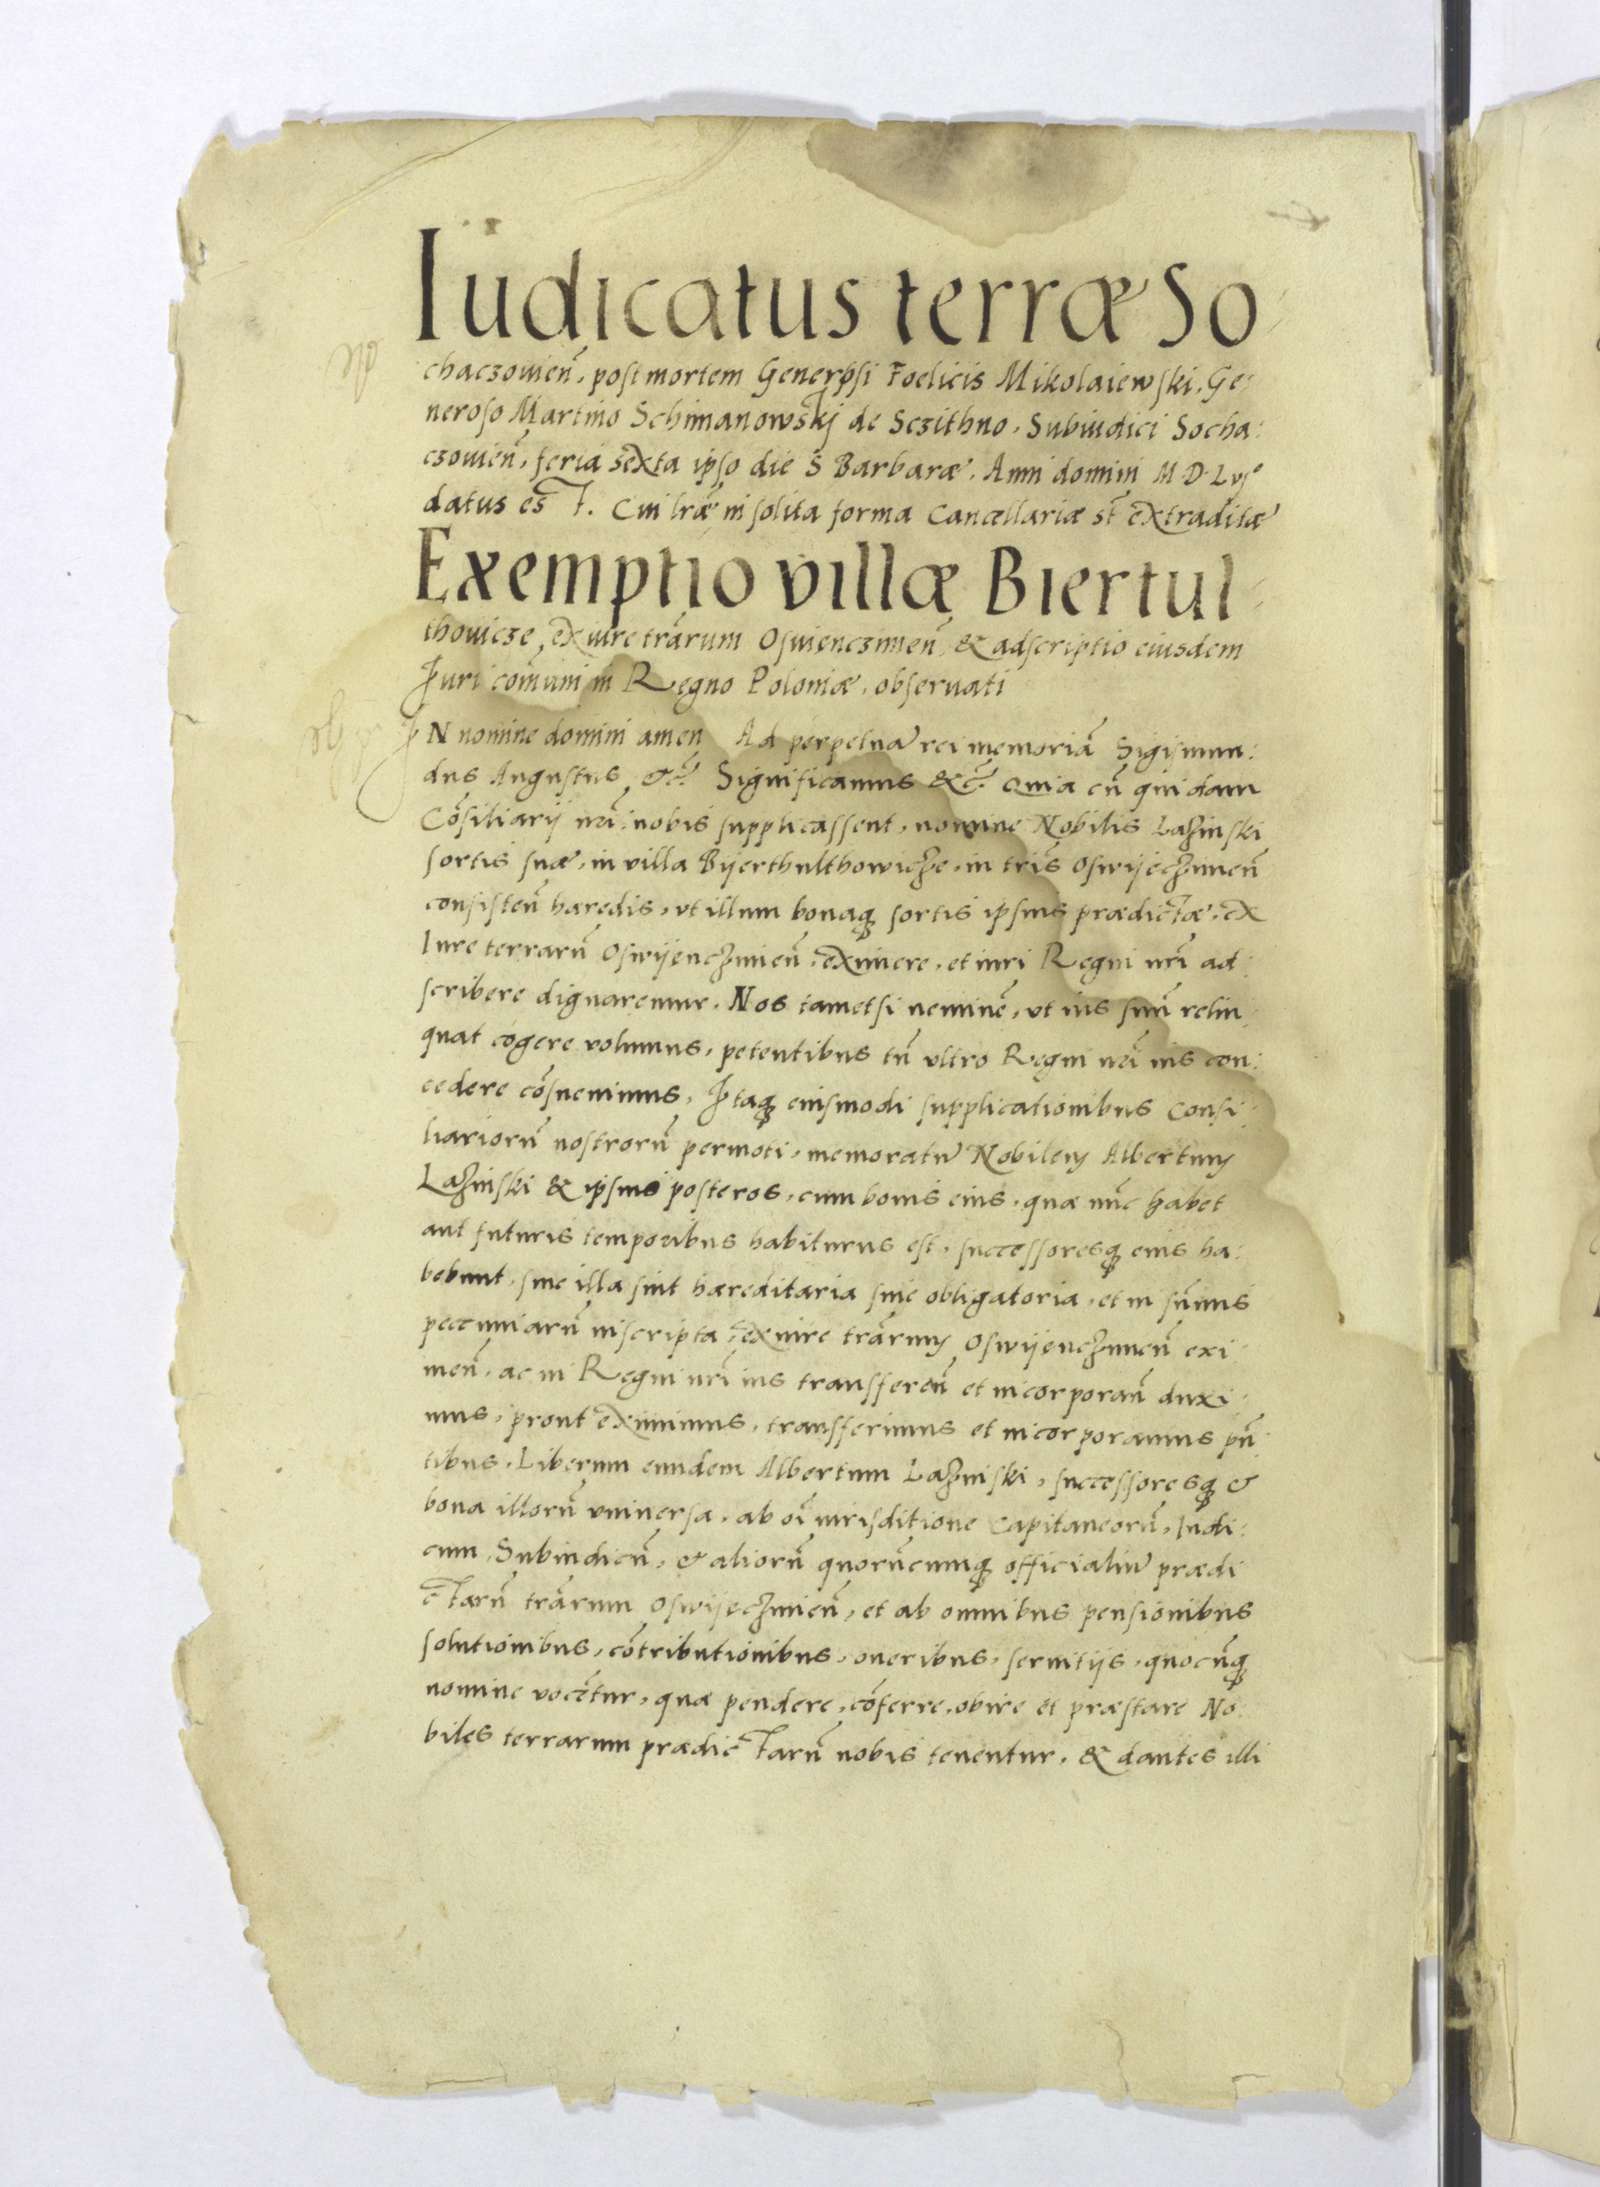 Iudicatus terræ So
chaczouien̄, post mortem Generosi Foelicis Mikolaiewski, Ge:
neroso Martino Schimanowskj de Sczithno, Subiudici Socha:
czouien̄, feria sexta ipso die S Barbaræ, Anni domini M D Lvjº
datus est. Cui lr̄æ in solita forma Cancellariæ st̄ extraditæ
Exemptio villæ Biertul-
thouicze, ex iure trārum Osuienczimen̄ & adscriptio eiusdem
Iuri com̄uni in Regno Poloniæ, obseruati
IN nomine domini amen Ad perpetuā rei memoriā Sigijmun:
dus Augustus &c̄ Significamus &c̄ Quia cū quidam
Cōsiliarij nr̄i nobis supplicassent, nomine Nobilis Laʒinski
sortis suæ, in villa Bijerthulthowicʒe, in trīs Oswijecʒimen̄
consisten̄ hæredis, vt illum bonaqȝ sortis ipsius prædictæ, ex
Iure terrarū Oswijencʒimien̄, eximere, et iuri Regni nr̄i ad:
scribere dignaremur. Nos tametsi neminē, vt ius suū relin:
quat cogere volumus, petentibus tn̄ vltro Regni nr̄i ius con:
cedere cōsueuimus, Itaqȝ eiusmodi supplicationibus Consi:
liariorū nostrorū permoti, memoratū Nobilem Albertum
Laʒinski & ipsius posteros, cum bonis eius, quæ nūc habet
aut futuris temporibus habiturus est, successoresqȝ eius ha:
bebunt, siue illa sint hæreditaria siue obligatoria, et in sūmis
peccuniarū inscripta, ex iure trārum Oswijencʒimen̄ exi:
men̄, ac in Regni nr̄i ius transferen̄ et incorporan̄ duxi:
mus, prout eximimus, transferimus et incorporamus pn̄
tibus, Liberum eundem Albertum Laʒinski, successoresqȝ &
bona illorū vniuersa, ab oī iurisditione Capitaneorū, Iudi:
cum, Subiudicū, & aliorū quorūcumqȝ officialiū prædi
ctarū trārum Oswijecʒimien̄, et ab omnibus pensionibus
solutionibus, cōtributionibus, oneribus, seruitijs, quocūqȝ
nomine vocētur, quæ pendere, cōferre, obire et præstare No:
biles terrarum prædictarū nobis tenentur, & dantes illi